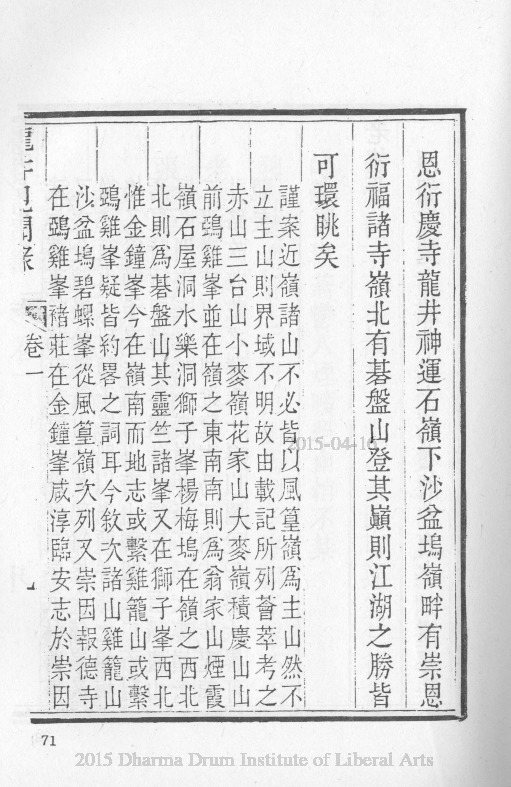 恩衍慶寺龍井神運石嶺下沙盆塢嶺畔有崇恩
衍福諸寺嶺北有碁盤山登其巔則江湖之勝皆
可環眺矣
謹案近嶺諸山不必皆以風篁嶺爲主山然不
立主山則界域不明故由載記所列薈萃考之
赤山三台山小麥嶺花家山大麥嶺積慶山山
前鵶雞峯並在嶺之東南南則爲翁家山煙霞
嶺石屋洞水樂洞獅子峯楊梅塢在嶺之西北
北則爲碁盤山其靈竺諸峯又在獅子峯西北
惟金鐘峯今在嶺南而地志或繫雞籠山或繫
鵶雞峯疑皆約畧之詞耳今敘次諸山雞籠山
沙盆塢碧螺峯從風篁嶺次列又崇因報德寺
在鵶雞峯褚莊在金鐘峯咸淳臨安志於崇因
龍井見聞錄
卷一
九
71
2015-04-16
2015 Dharma Drum Institute of Liberal Arts